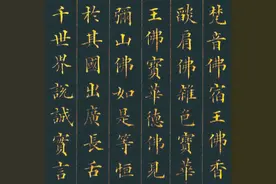 梵音佛宿王佛香
燄肩佛雜色寶華
王佛寶華德佛見
彌山佛如是等恒
於其國出廣長舌
千世界說誠實言